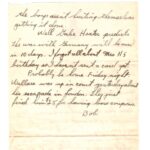 the boys aren't hurting themselves
getting it done.
Well Gabe Heater predicts
the war with Germany will be over
in 10 days. I forgot all about Max H's
birthday and haven't sent a card yet.
Probably be home Friday night
Wallace was up in court yesterday about
his escapade in London. They just
fined him for having a weapon
Bob